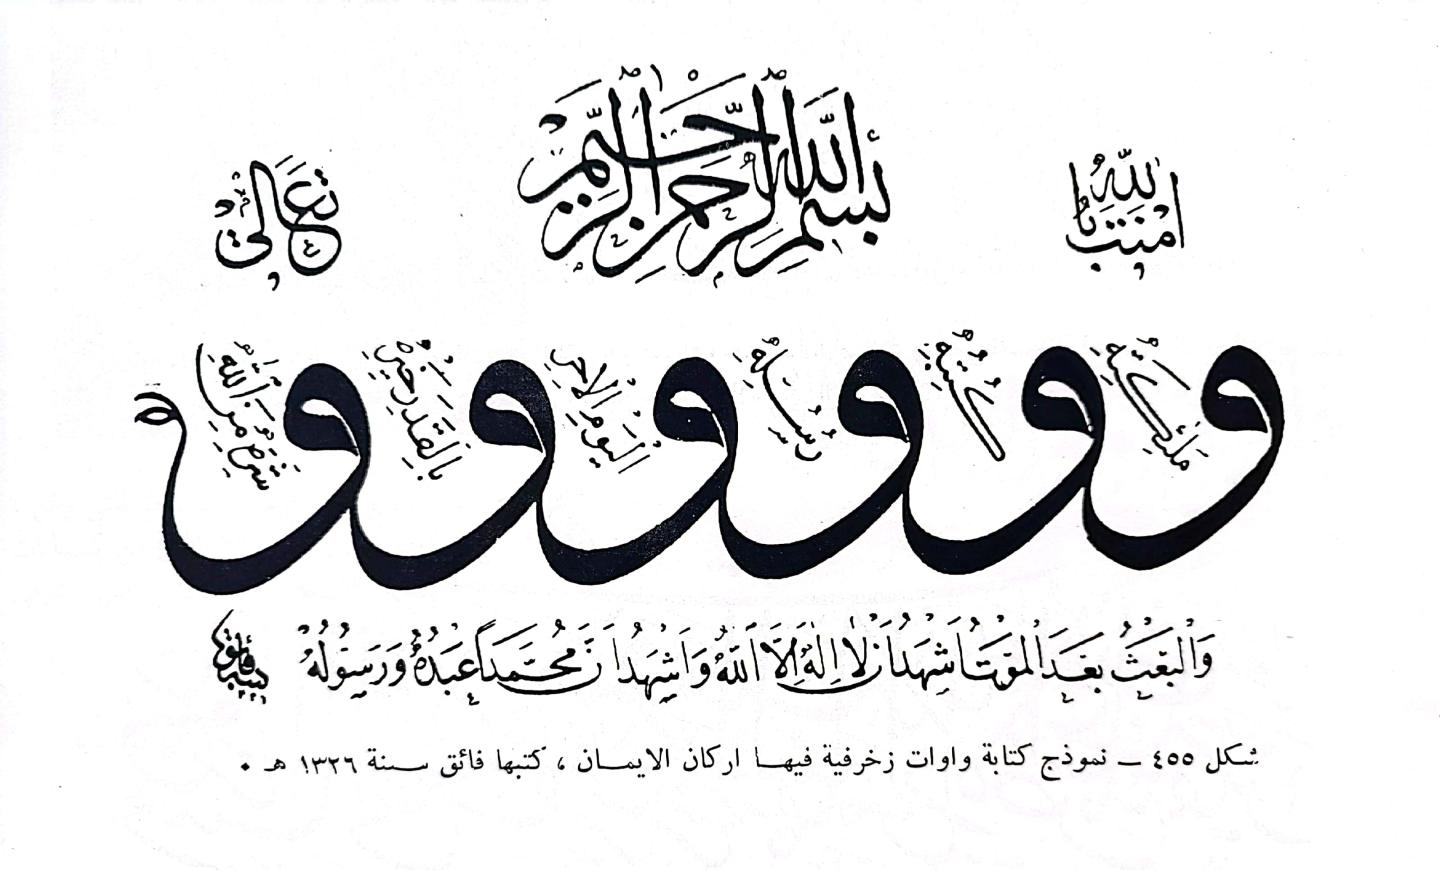 بسم الله الرحمن الرحيم
امنت بالله
تعالى
و ملئكته و كتبه و رسله و اليوم الاخر و بالقدر خيره و شره من الله
والبعث بعد الموت اشهد ان لا اله الا الله واشهد ان محمدا عبده ورسوله
فائق
شكل ٤٥٥ ــ نموذج كتابة واوات زخرفية فيها اركان الايمان ، كتبها فائق سنة ١٣٢٦ هـ ٠